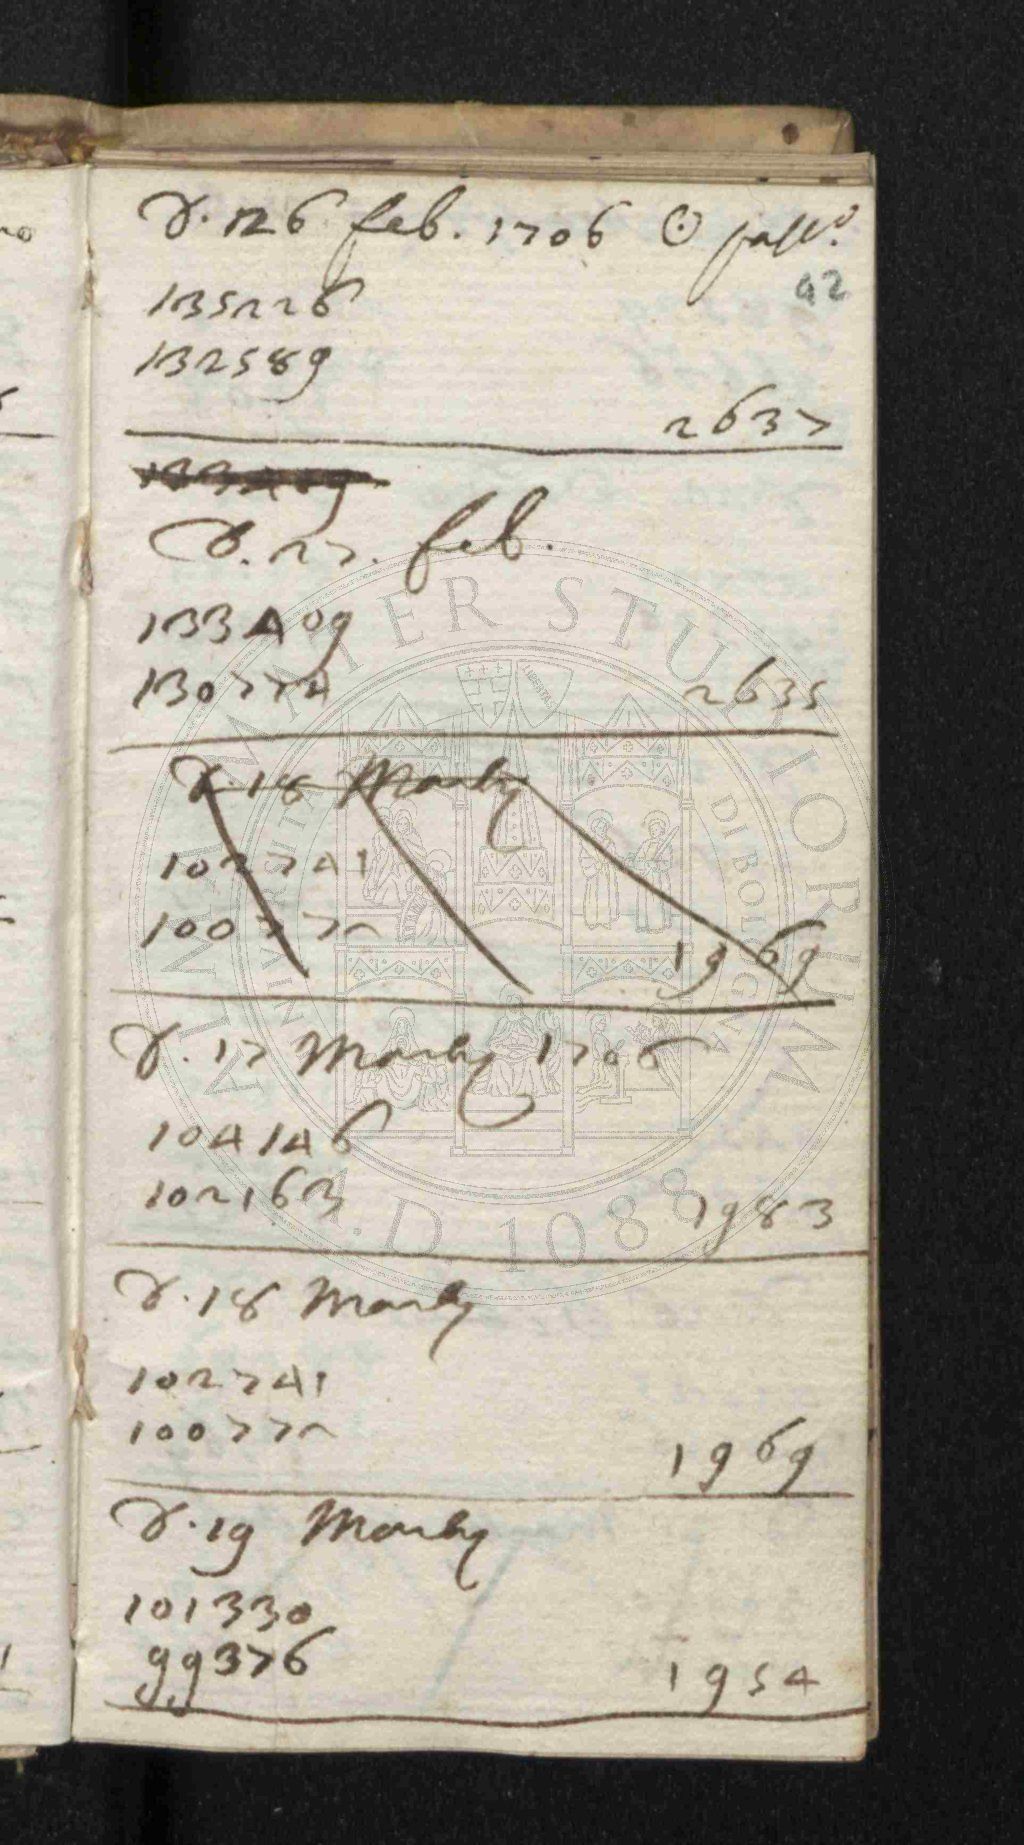 D. 26 feb. 1706 ☉
92
135226
132589
2637
D. 27. feb.
133409
130774
2635
D. 18 Martij
102741
100772
1969
D. 17 Martij 1706
104146
102163
1983
D. 18 Martij
102741
100772
1969
D. 19 Martij
101330
99376
1954
ALMA MATER STUDIORUM
UNIVERSITÀ DI BOLOGNA
LIBERTAS
A.D. 1088